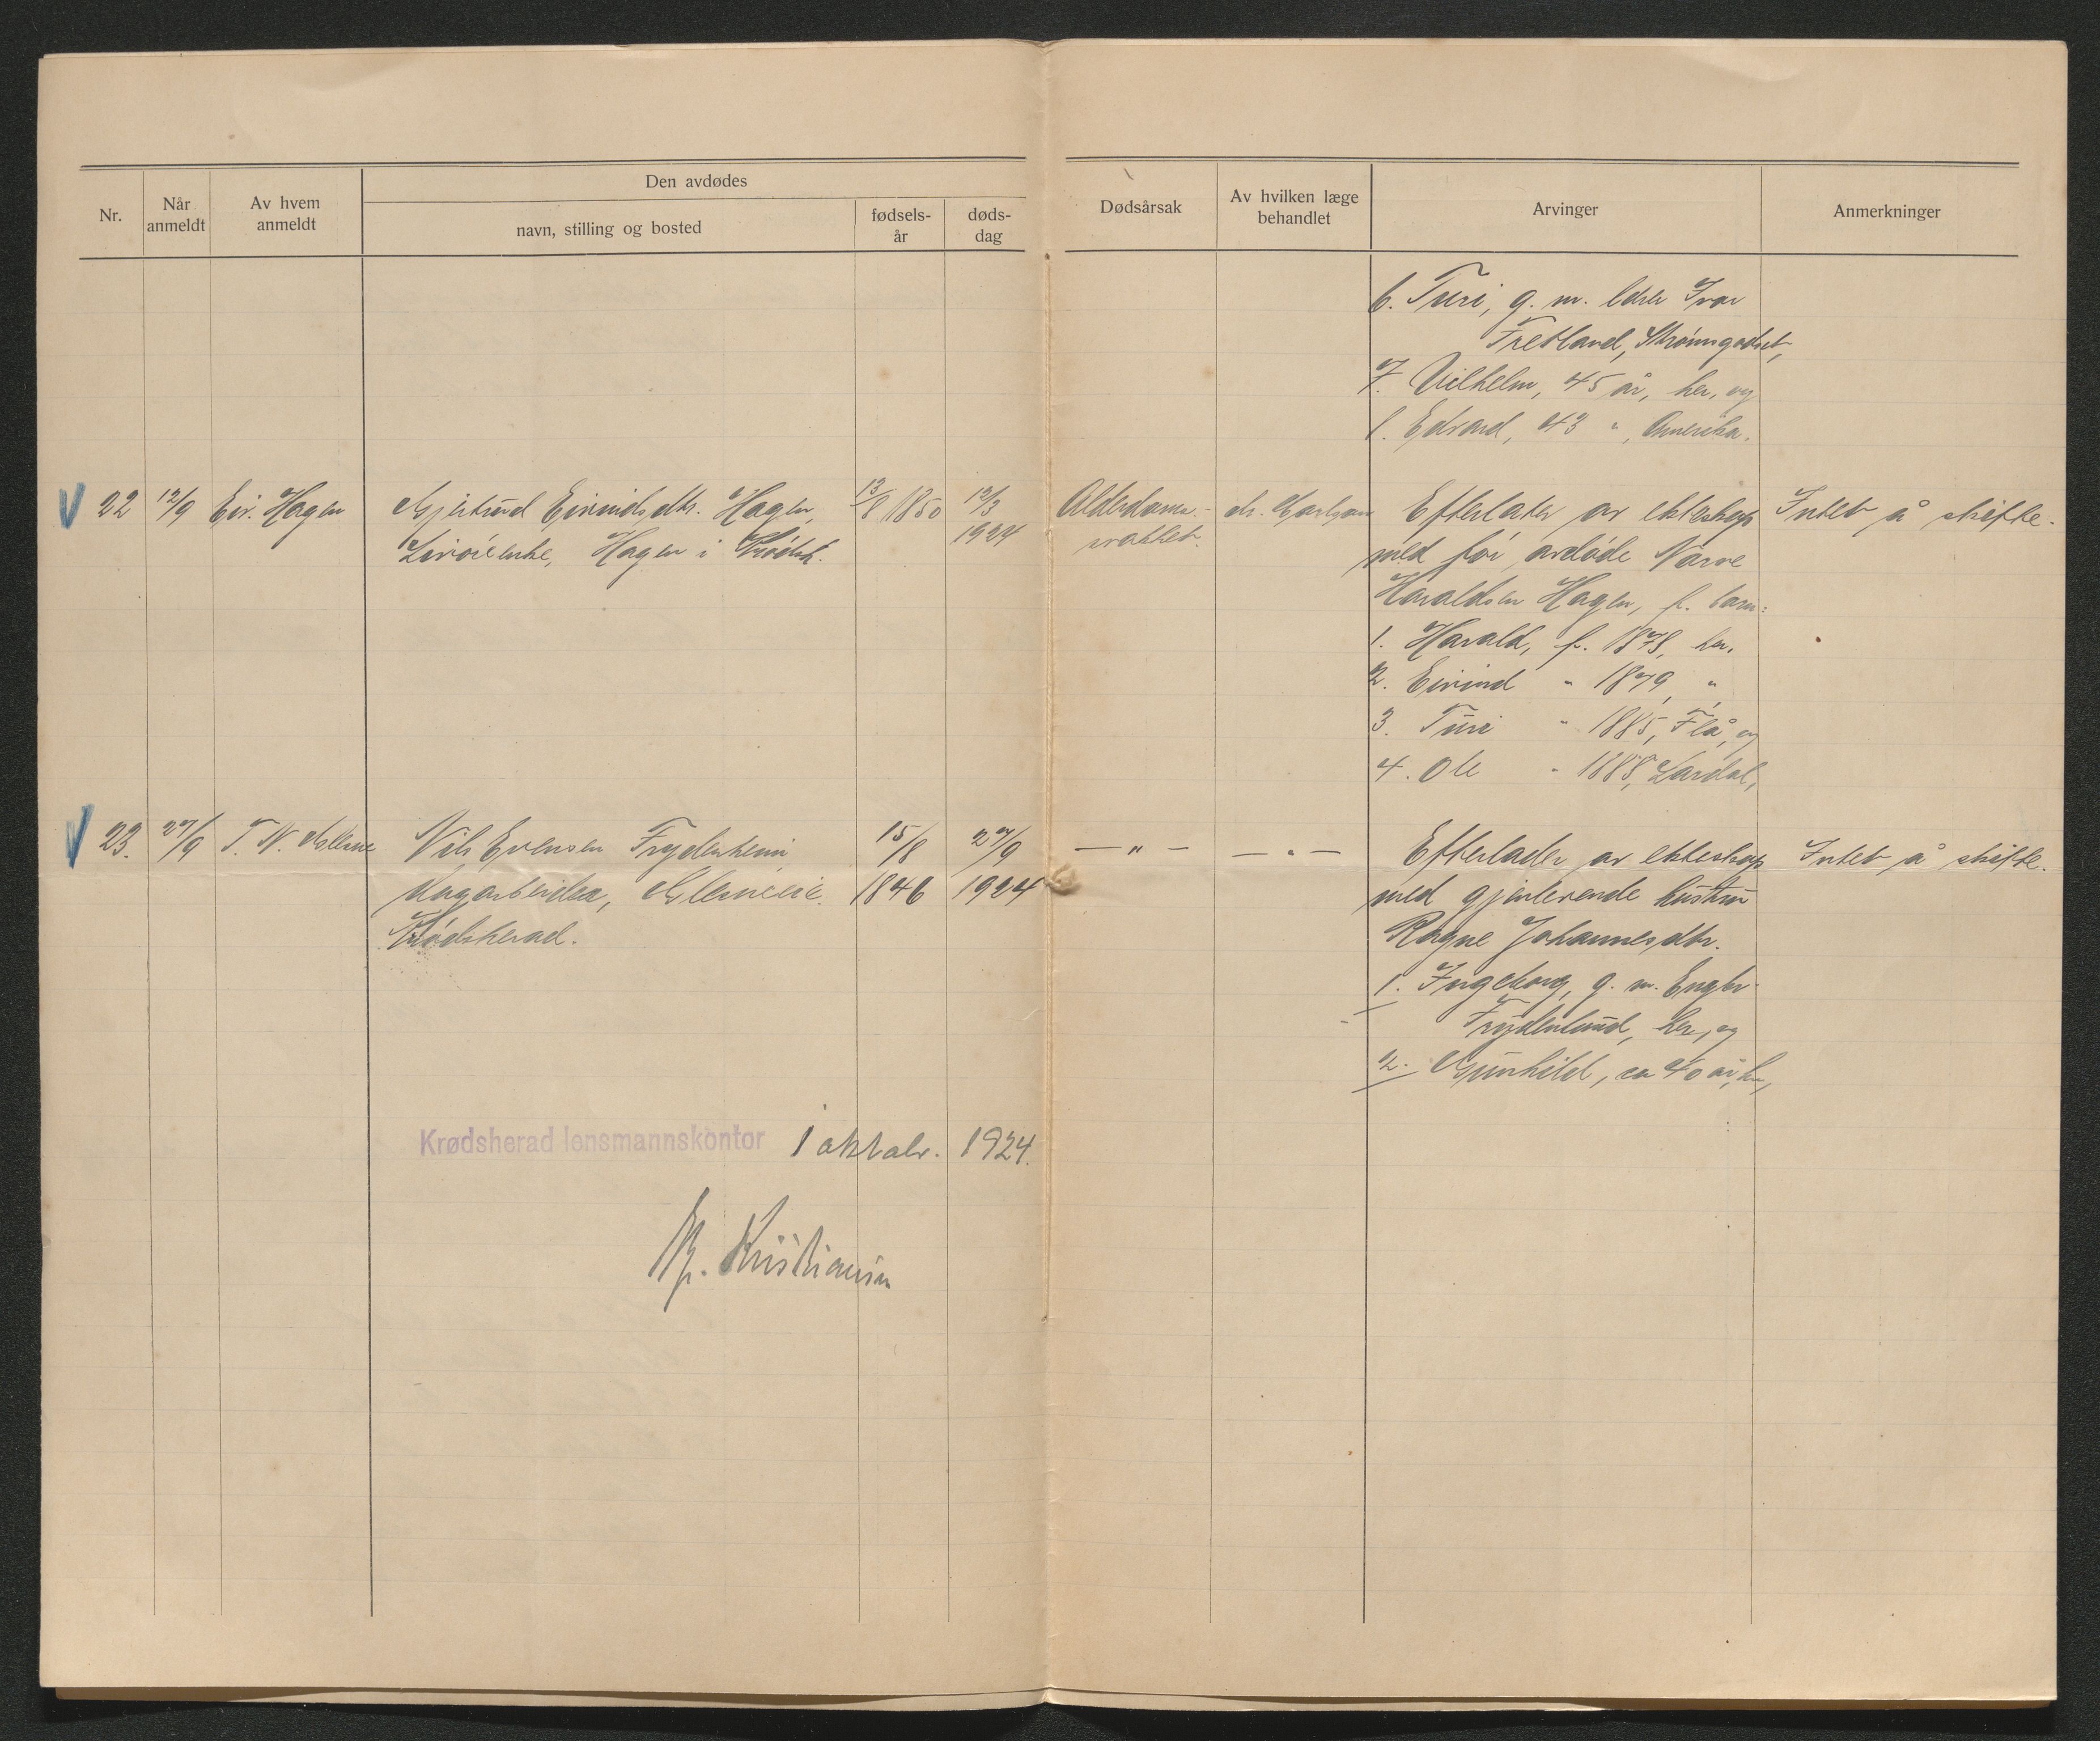 Nr.
Når anmeldt
Av hvem anmeldt
Den avdødes
navn, stilling og bosted
fødsels-år
døds-dag
Dødsårsak
Av hvilken læge behandlet
Arvinger
Anmerkninger
6. Turi, g. m. Ivar
Fretland, Strømsgodset,
7. Vilhelm, 45 år, her, og
8. Edvard, 43 " , Amerika.
22 12/9 Eiv. Hagen
Gjertrud Eivindsdtr. Hagen,
Hagen i Krødsh.
13/8 1850
12/3
1924
Alderdoms-
svakhet.
dr.
Efterlater av ekteskap
med før avdøde Narve
Haraldsen Hagen, f. barn:
1. Harald, f. 1878, her.
2. Eivind " 1879, "
3. Turi " 1885, Flå, og
4. Ole " 1888, Lardal,
Intet å skifte.
23. 27/9 T. N.
Nils Evensen Frydenheim
Krødsherad.
15/8
1846
27/9
1924
— " —
— " —
Efterlader av ekteskap
med gjenlevende hustru
Ragne Johannesdtr.
1. Ingeborg, g. m. Engbr.
Frydenlund, her, og
2. Gunhild, ca 40 år, her,
Intet å skifte.
Krødsherad lensmannskontor 1 oktobr. 1924.
Kristiansen